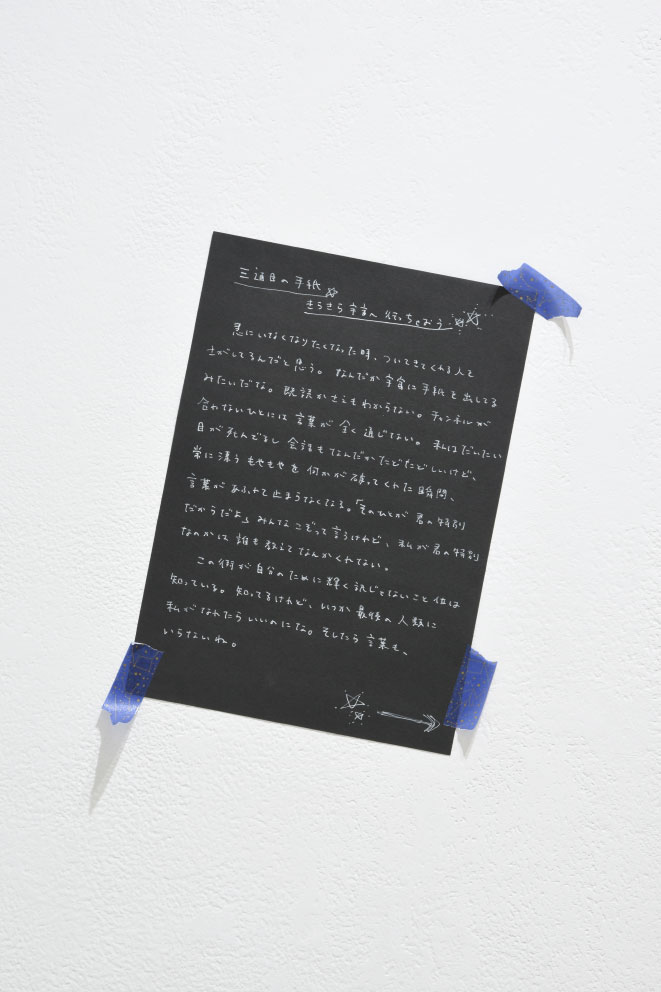 三通目の手紙
きらきら宇宙へ行っちゃおう
急にいなくなりたくなった時、ついてきてくれる人を
さがしてるんだと思う。なんだか宇宙に手紙を出してる
みたいだな。既読かさえもわからない。チャンネルが
合わないひとには言葉が全く通じない。私はだいたい
目が死んでるし会話もなんだかたどたどしいけど、
常に漂うもやもやを何かが破ってくれた瞬間、
言葉があふれて止まらなくなる。「そのひとが君の特別
だからだよ」みんなこぞって言うけれど、私が君の特別
なのかは誰も教えてなんかくれない。
この街が自分のために輝く訳じゃないこと位は
知っている。知ってるけれど、いつか最後の人類に
私がなれたらいいのにな。そしたら言葉も、
いらないね。